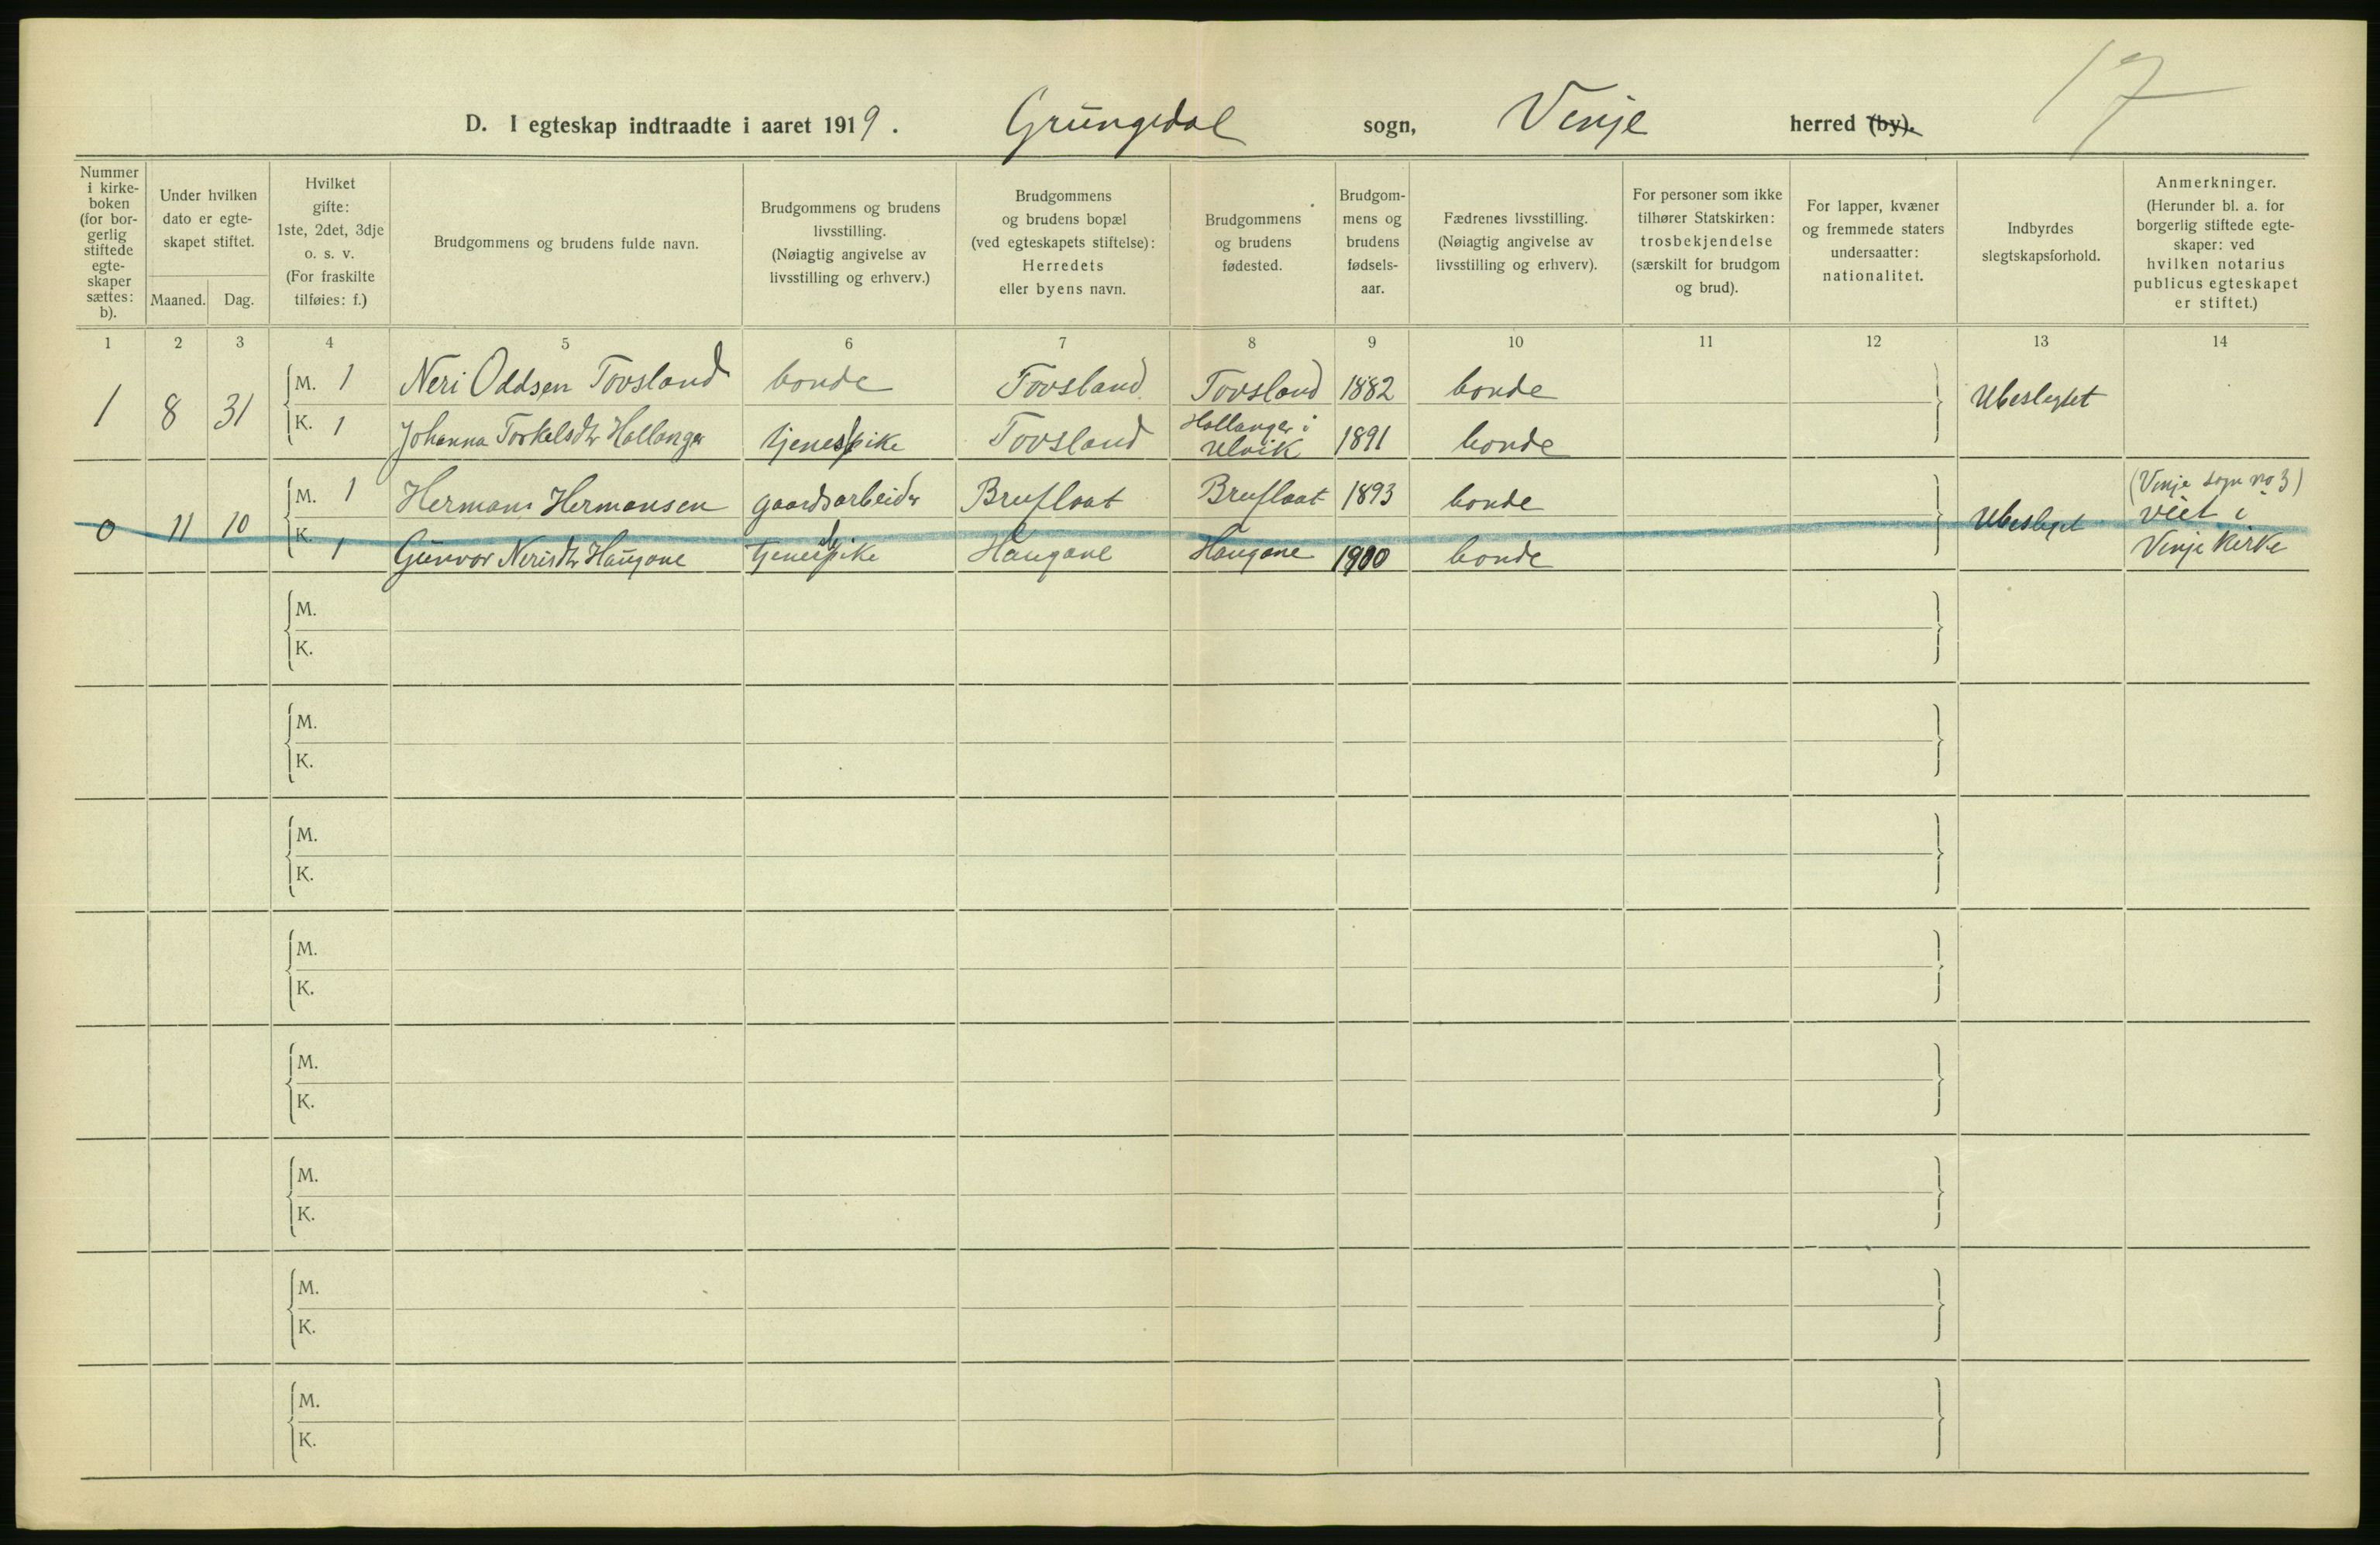 17
D. I egteskap indtraadte i aaret 1919. Grungedal sogn, Vinje herred (by).
Nummer
i kirke-
boken
(for bor-
gerlig
stiftede
egte-
skaper
sættes:
b).
Under hvilken
dato er egte-
skapet stiftet.
Maaned. Dag.
Hvilket
gifte:
1ste, 2det, 3dje
o. s. v.
(For fraskilte
tilføies: f.)
Brudgommens og brudens fulde navn.
Brudgommens og brudens
livsstilling.
(Nøiagtig angivelse av
livsstilling og erhverv.)
Brudgommens
og brudens bopæl
(ved egteskapets stiftelse):
Herredets
eller byens navn.
Brudgommens
og brudens
fødested.
Brudgom-
mens og
brudens
fødsels-
aar.
Fædrenes livsstilling.
(Nøiagtig angivelse av
livsstilling og erhverv).
For personer som ikke
tilhører Statskirken:
trosbekjendelse
(særskilt for brudgom
og brud).
For lapper, kvæner
og fremmede staters
undersaatter:
nationalitet.
Indbyrdes
slegtskapsforhold.
Anmerkninger.
(Herunder bl. a. for
borgerlig stiftede egte-
skaper: ved
hvilken notarius
publicus egteskapet
er stiftet.)
1 2 3 4 5 6 7 8 9 10 11 12 13 14
M. 1 Neri Oddsen Tovsland bonde Tovsland Tovsland 1882 bonde
1 8 31 Ubeslegtet
K. 1 Johanna Torkelsdtr Hallanger tjenespike Tovsland Hallanger i
Ulvik 1891 bonde
M. 1 Hermans Hermansen gaardsarbeider Bruflaat Bruflaat 1893 bonde (Vinje sogn no 3)
0 11 10 Ubeslegtet viet i
K. 1 Gunvor Nerisdtr Haugane tjenespike Haugane Haugane 1900 bonde Vinje kirke
M.
K.
M.
K.
M.
K.
M.
K.
M.
K.
M.
K.
M.
K.
M.
K.